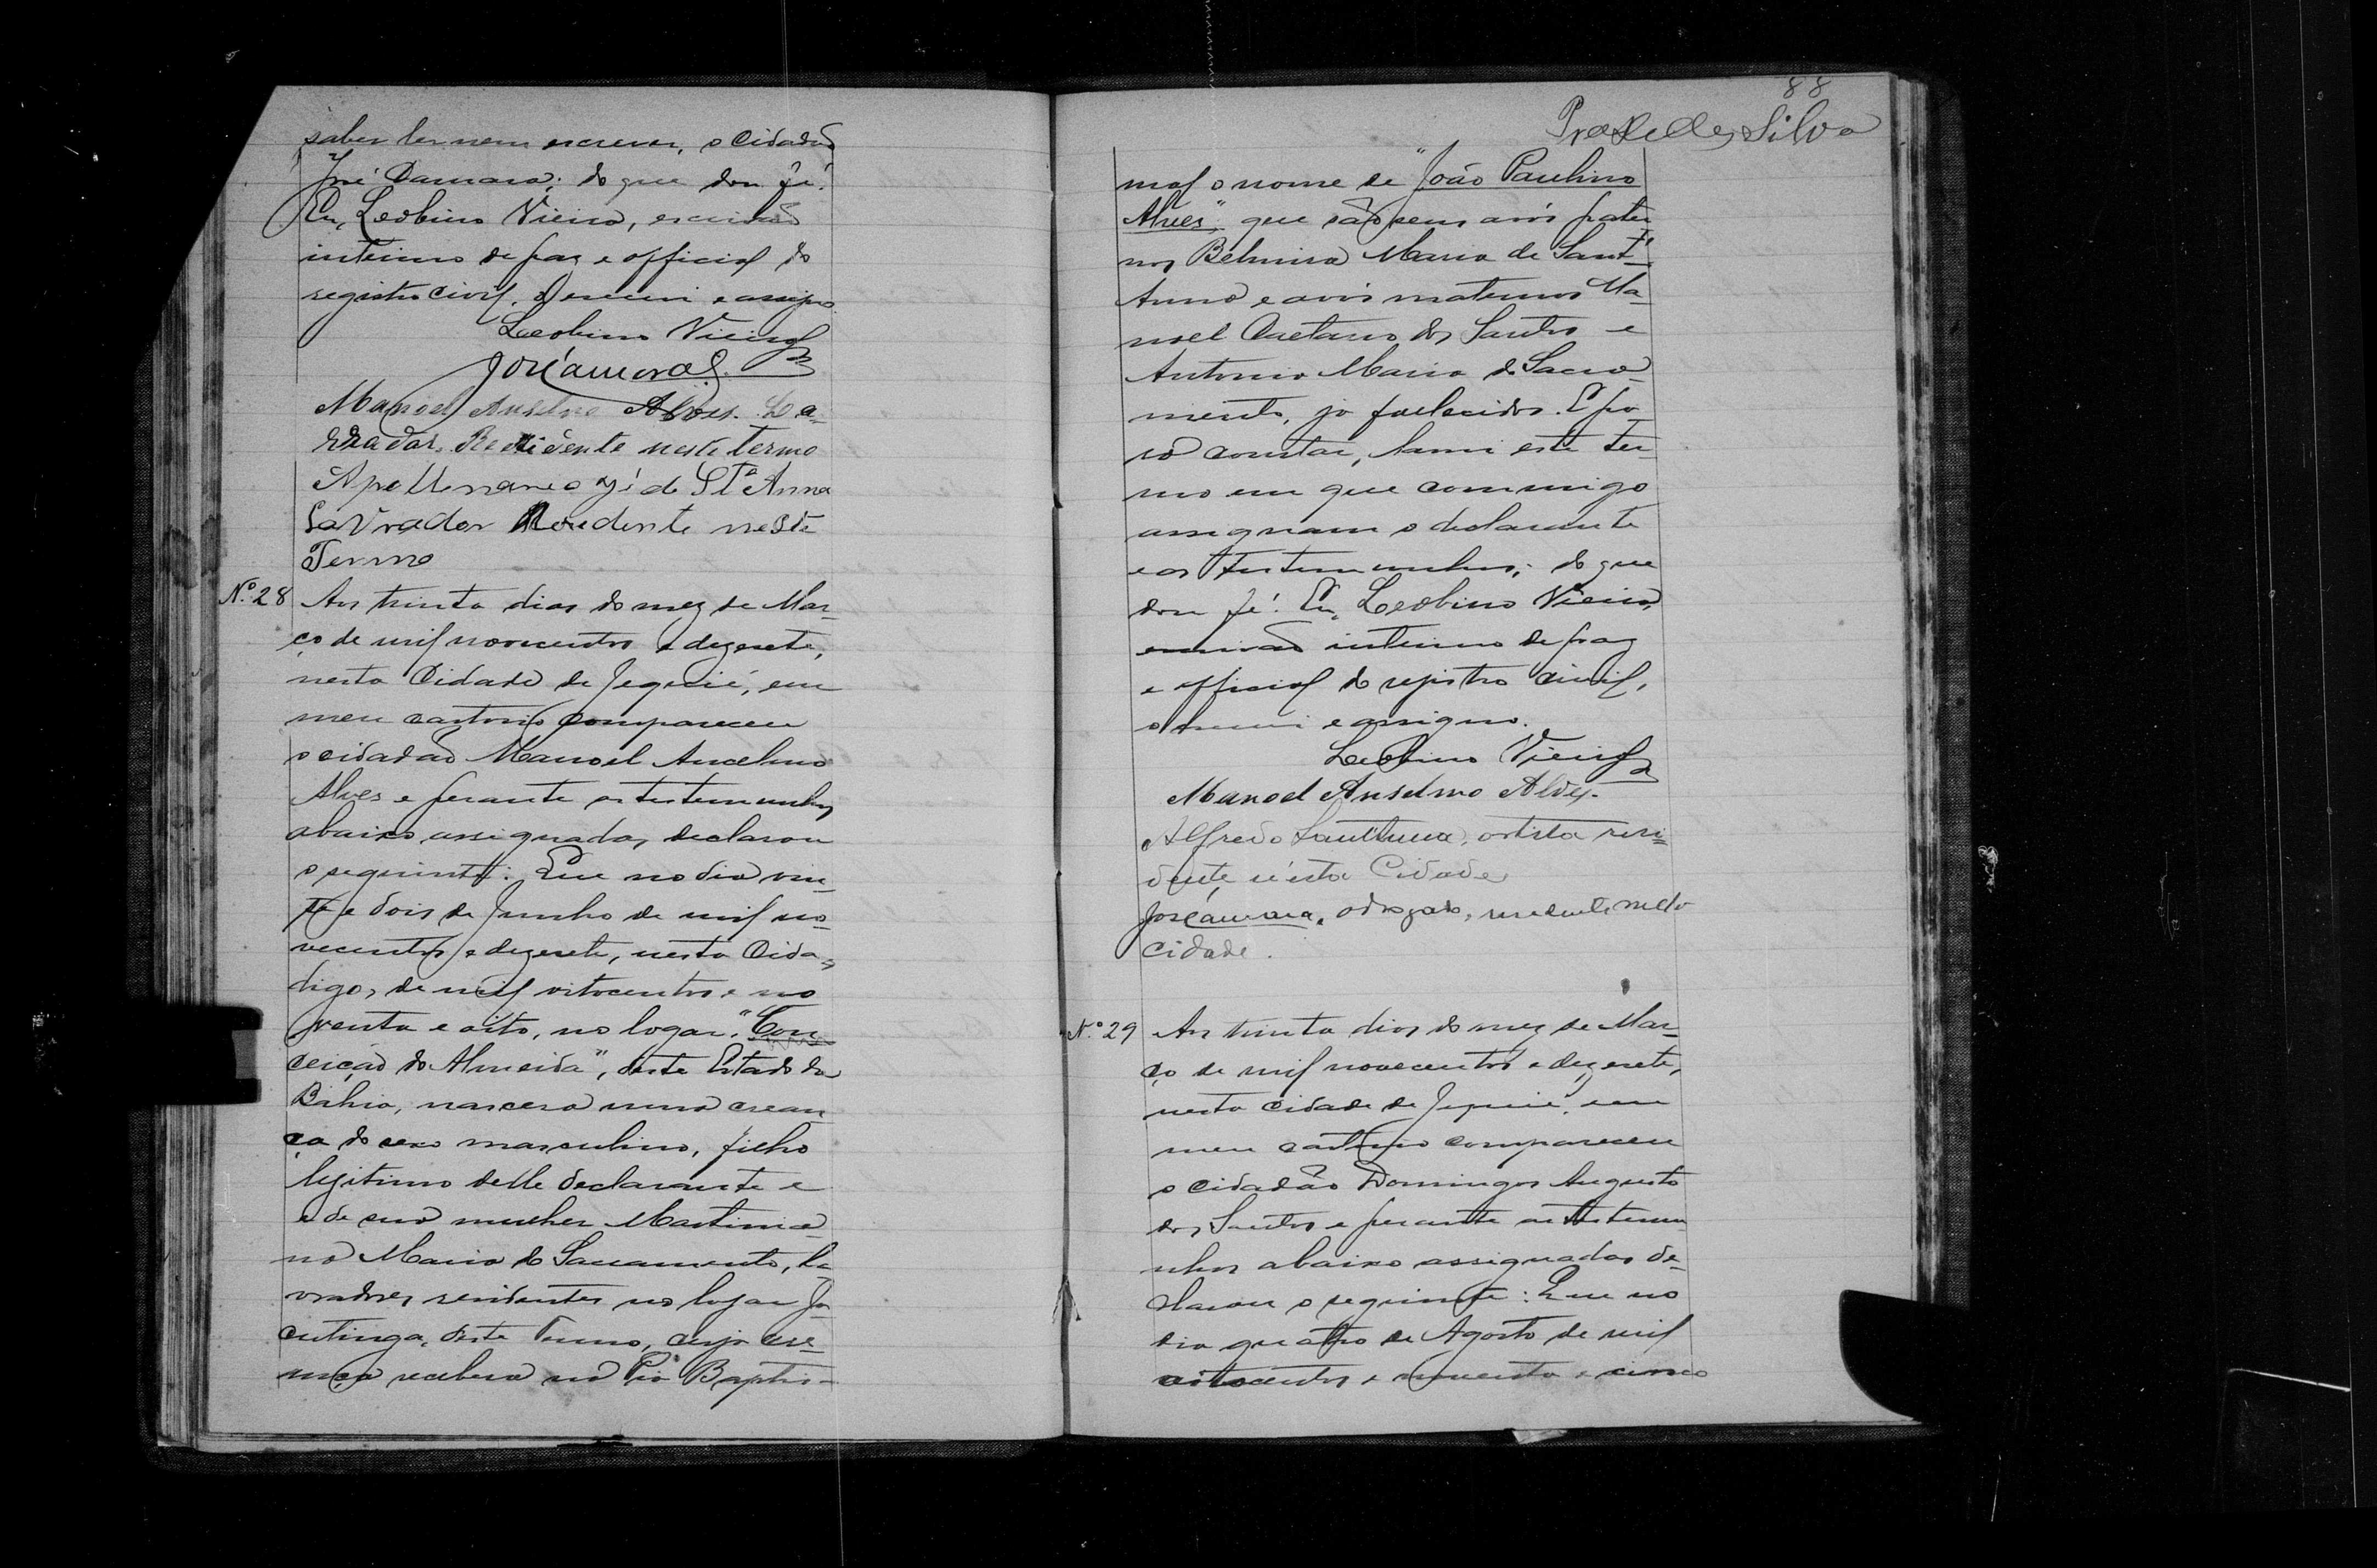 saber ler nem escrever, o cidadão
José Camara; do que dou fé.
Eu, Leobino Vieira, escrivão
interino de paz e official do
registro civil, o escrevi e assigno.
Leobino Vieira
José Camara
Manoel Anselmo Alves. La-
vrador. Residente neste termo
Apollenario Jé de Sta Anna
Lavrador Residente neste
Termo
Nº 28 Aos trinta dias do mez de Mar-
ço de mil novecentos e dezesete,
nesta Cidade de Jequié, em
meu cartorio compareceu
o cidadão Manoel Ancelmo
Alves e perante as testemunhas
abaixo assignadas, declarou
o seguinte: Que no dia vin-
te e dois de Junho de mil no-
vecentos e dezesete, nesta Cida,
digo, de mil oitocentos e no
venta e oito, no logar "Con
ceição do Almeida", deste Estado da
Bahia, nascera uma crean
ça do sexo masculino, filho
legitimo delle declarante e
e de sua mulher Martinia-
na Maria do Sacramento, la
vradores residentes no logar Ja
cutinga, deste Termo, cuja cre-
ança recebera na Pia Baptis-
88
Praxedes Silva
mal o nome de "João Paulino
Alves"; que são seus avós pater
nos Belmira Maria de Sant'
Anna e avós maternos Ma-
noel Caetano dos Santos e
Antonia Maria do Sacra-
mento, já fallecidos. E pa
ra constar, lavrei este ter-
mo em que commigo
assignam o declarante
e as testemunhas; do que
dou fé. Eu, Leobino Vieira,
escrivão interino de paz
e official do registro civil,
o escrevi e assigno.
Leobino Vieira
Manoel Anselmo Alves.
Alfredo Sant'Anna, artista resi-
dente n'esta Cidade
José Camara, advogado, residente nesta
cidade.
Nº 29 Aos trinta dias do mez de Mar-
ço de mil novecentos e dezesete,
nesta cidade de Jequié, em
meu cartorio compareceu
o cidadão Domingos Augusto
dos Santos e perante as testemu
nhas abaixo assignadas de-
clarou o seguinte: Que no
dia quatro de Agosto de mil
oitocentos e noventa e cinco